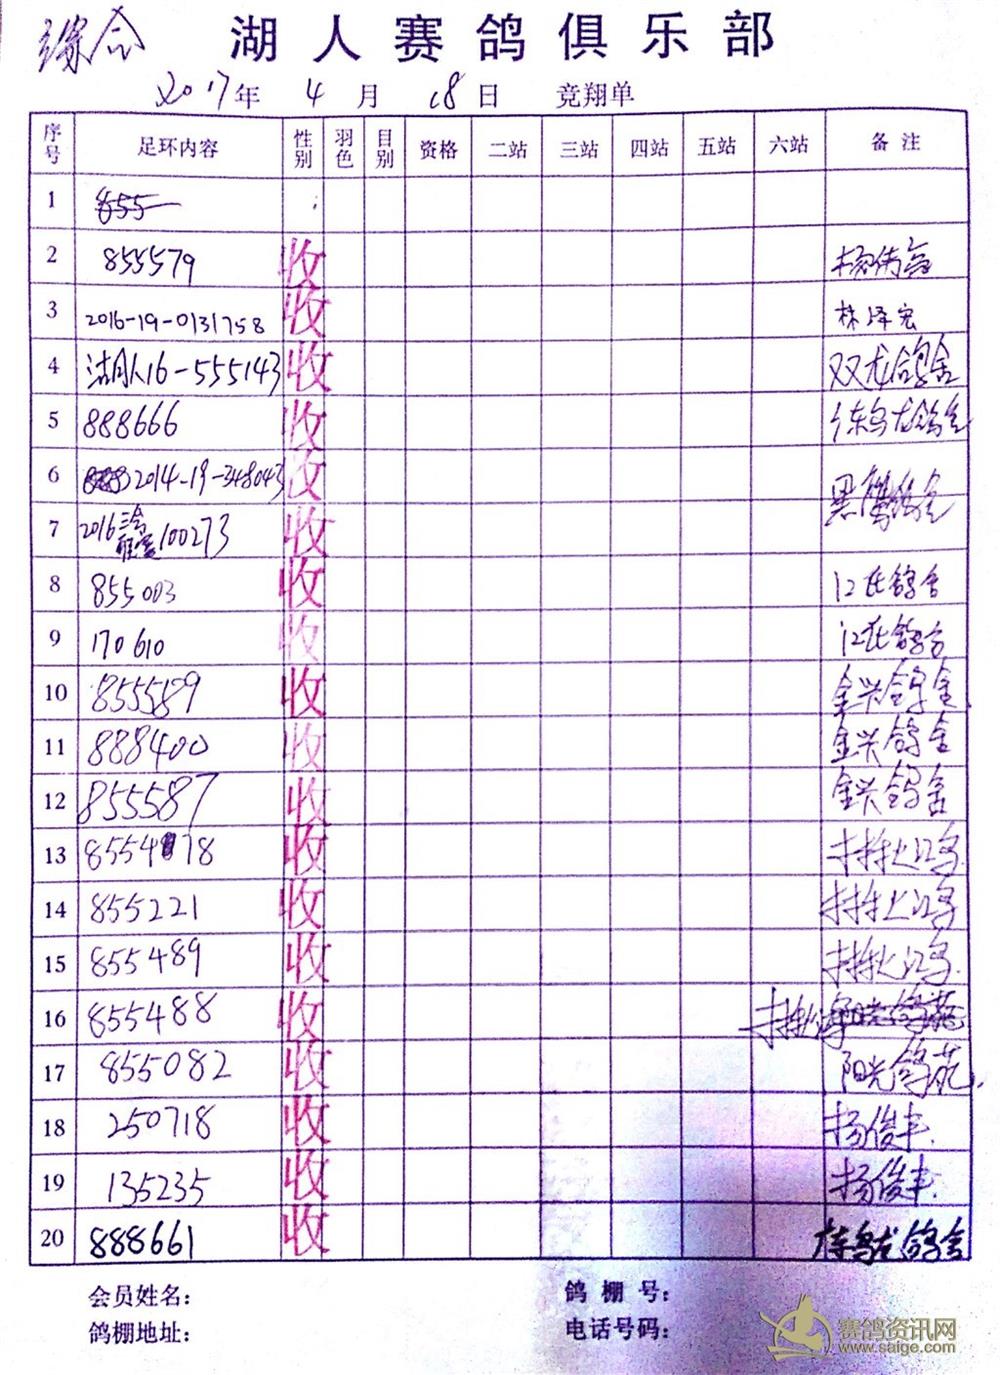 缘念
湖人赛鸽俱乐部
2017年 4月 18日 竞翔单
序号 足环内容 性别 羽色 目别 资格 二站 三站 四站 五站 六站 备注
1 855
2 855579 收
3 2016-19-0131758 收 林泽宏
4 湖人16-555143 收 双龙鸽舍
5 888666 收
6 2014-19-348043 收 黑鹰鸽舍
7 2016 100273 收
8 855003 收 江氏鸽舍
9 170610 收 江氏鸽舍
10 855589 收 金兴鸽舍
11 888400 收 金兴鸽舍
12 855587 收 金兴鸽舍
13 8554 18 收
14 855221 收
15 855489 收
16 855488 收
17 855082 收 阳光鸽苑
18 250718 收 杨俊丰
19 135235 收 杨俊丰
20 888661 收 鸽舍
会员姓名： 鸽棚号：
鸽棚地址： 电话号码：
赛鸽资讯网
www.saige.com